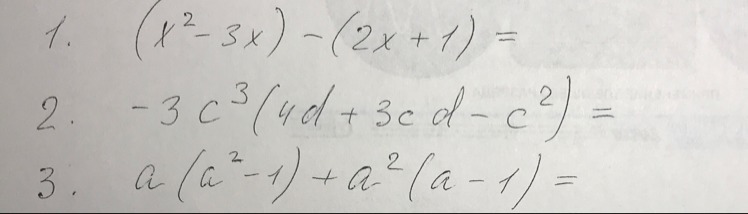 1. (x² - 3x) - (2x + 1) =
2. -3c³(4d + 3cd - c²) =
3. a(a² - 1) + a²(a - 1) =